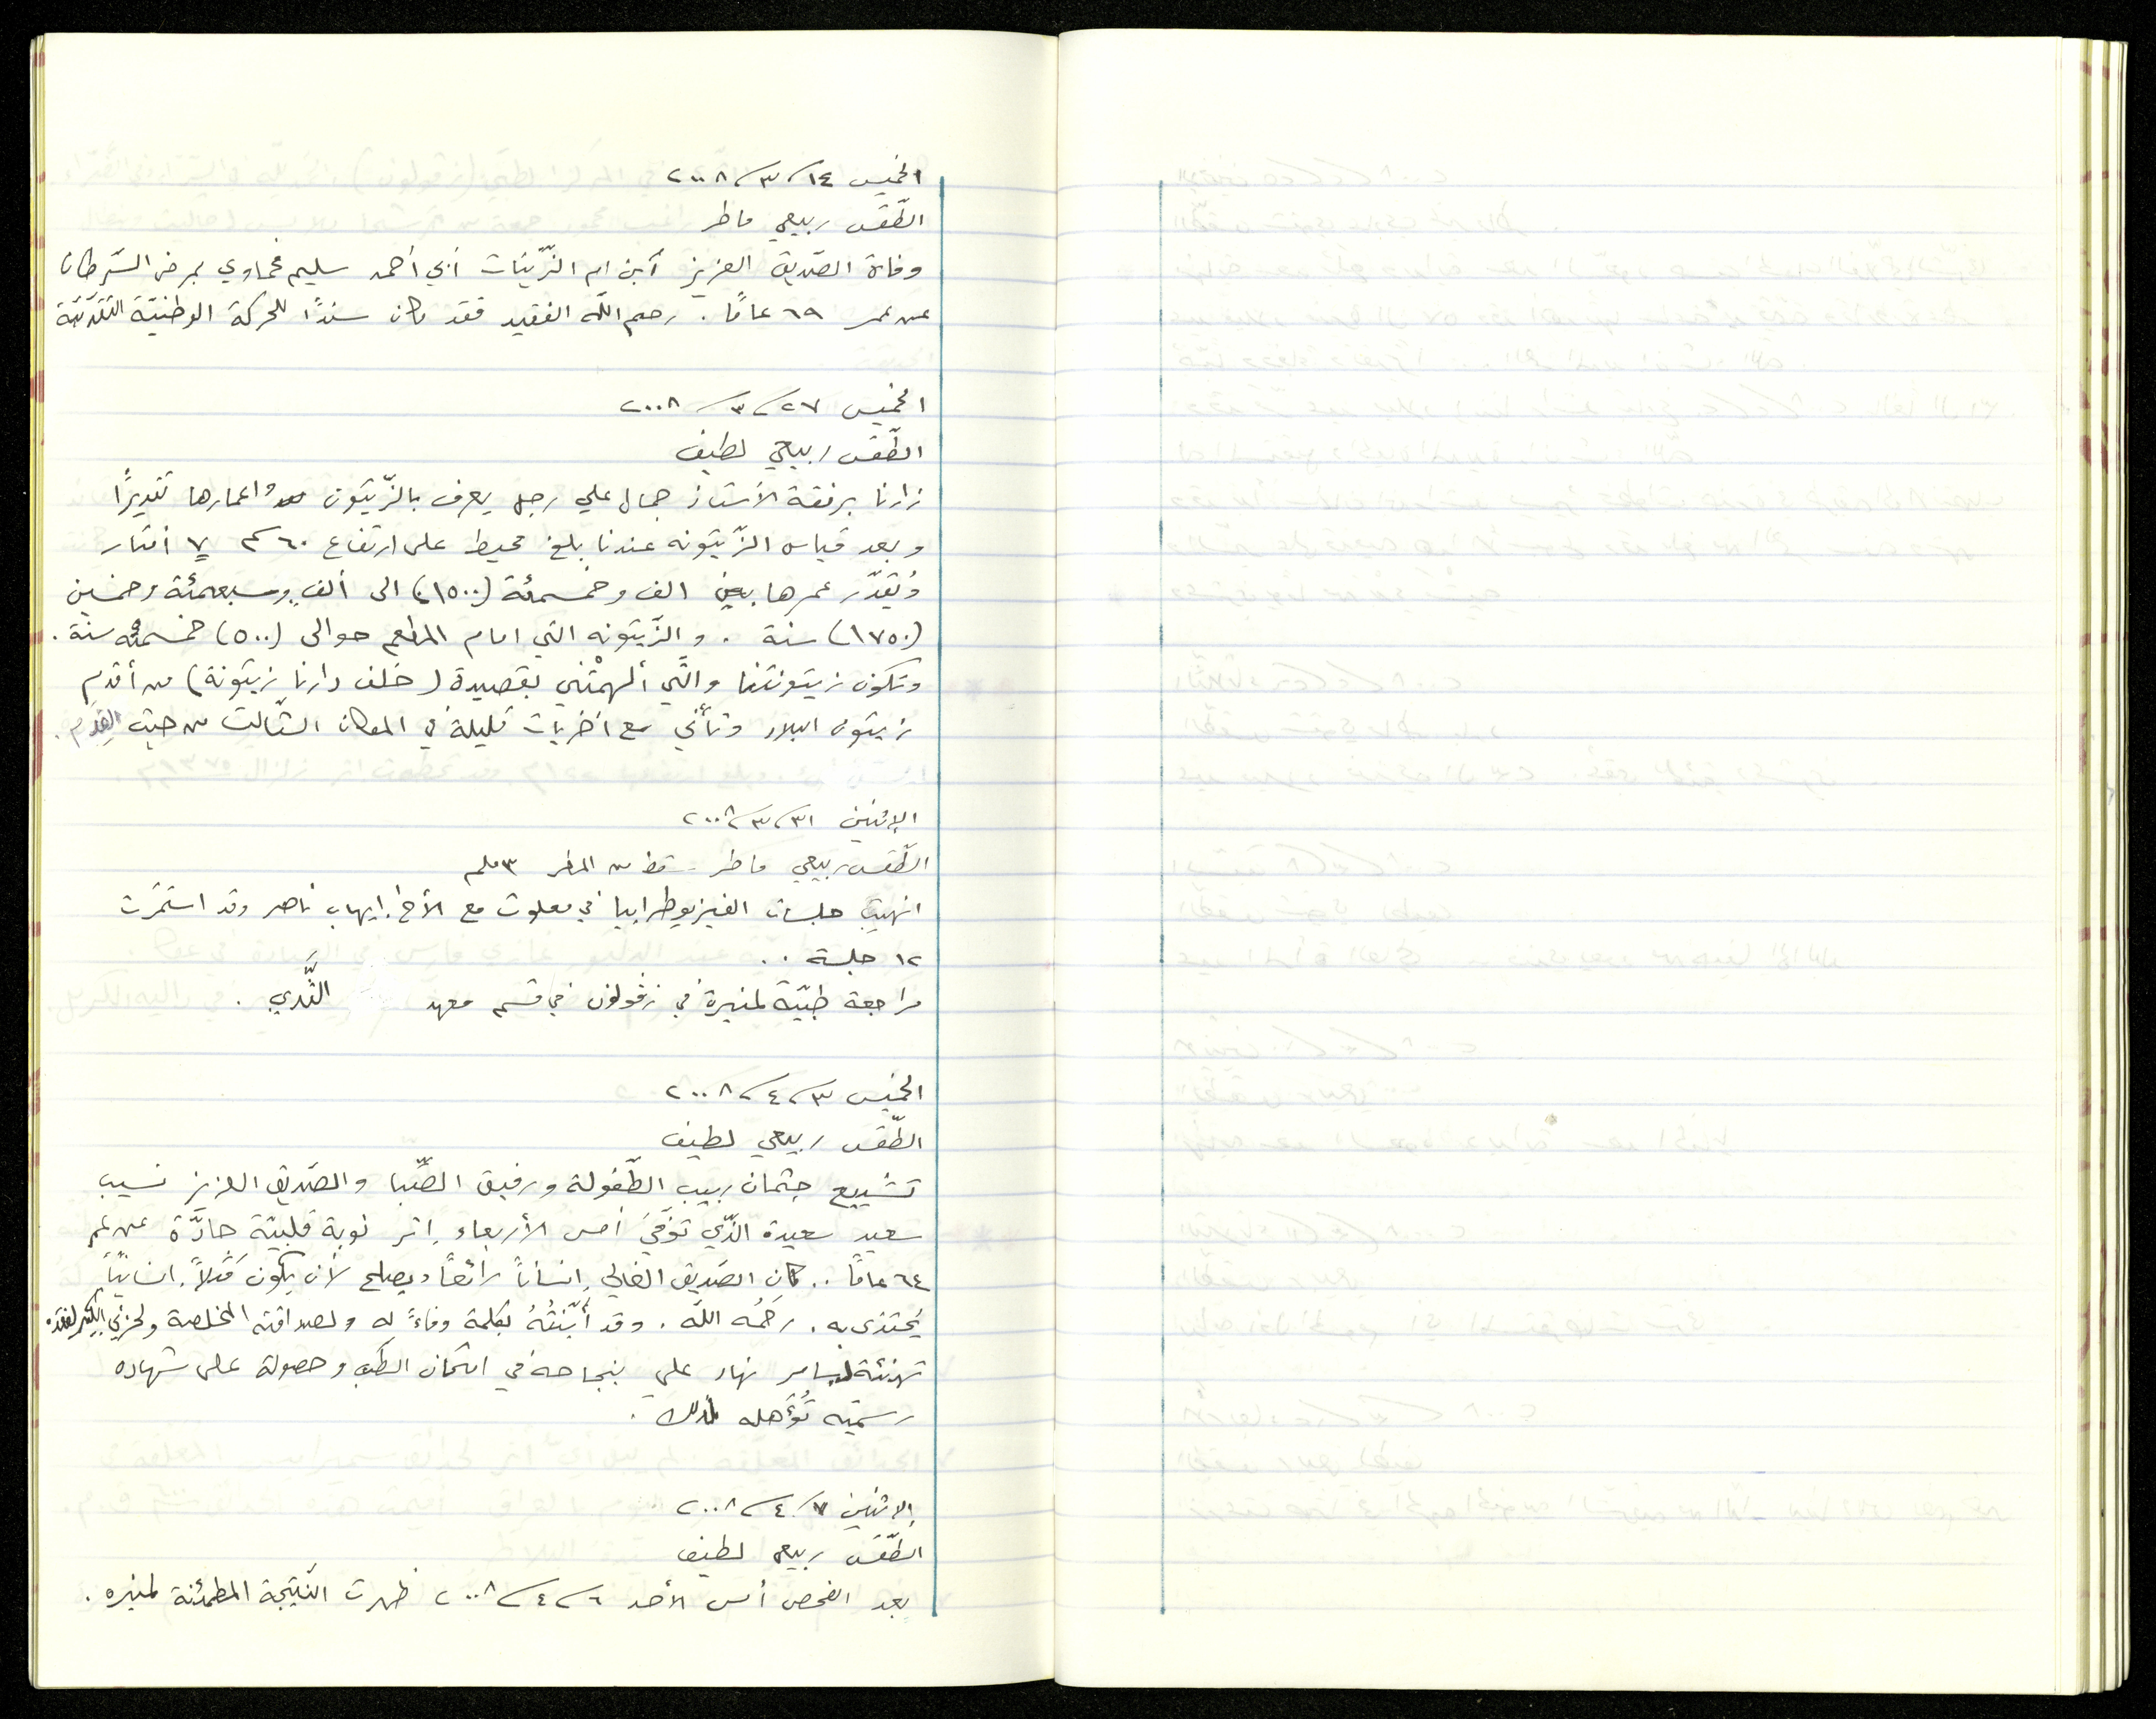 الخميس ١٤/٣/٢٠٠٨
الطّقس ربيعي ماطر
وفاة الصّديق العزيز ابن ام الزّينات أبي أحمد سليم فحماوي بمرض السّرطان
عن عمر ٦٩ عامًا. رحم اللّه الفقيد فقد كان سندًا للحركة الوطنيّة التقدّميّة
الخميس ٢٧/٣/٢٠٠٨
الطّقس ربيعي لطيف
زارنا برفقة الأستاذ جمال علي رجل يعرف بالزّيتون واعمارها تقديرًا
وبعد قياس الزّيتونه عندنا بلغ محيط على ارتفاع ٦٠ سم ٧ امتار
وُيقدّر عمرها بين الف وخمسمئة (١٥٠٠) الى ألف وسبعمئة وخمسين
(١٧٥٠) سنة. والزّيتونه التي امام المطعم حوالى (٥٠٠) خمسمئه سنة.
وتكون زيتونتنا والتّي ألهمتْني بقصيدة (خلف دارنا زيتونة) من أقدم
زيتون البلاد وتأتي مع أخريات قليلة في المكان الثّالث من حيث القِدَم.
الإثنين ٣١/٣/٢٠٠٨
الطّقس ربيعي ماطر - سقط من المطر ٣ ملم
انهيت جلسات الفيزيوطرابيا في معلوت مع الأخ إيهاب ناصر وقد استمّرت
١٢ جلسة ..
مراجعة طبّية لمنيرة في زڤولون في قسم معهد الثَّدي.
الخميس ٣/٤/٢٠٠٨
الطّقس ربيعي لطيف
تشييع جثمان ربيب الطّفولة ورفيق الصّبا والصّديق العزيز نسيب
سعيد سعيدة الذّي توّفيَ أمس الأربعاء إثر نوبة قلبيّة حادّة عن عمر
٦٤ عامًا .. كان الصّديق الغالي إنساناً رائعاً ويصلح لأن يكون مَثَلاً إنسانيّاً
يُحتذى به. رحمُه اللّه. وقد أبّنتُهُ بكلمة وفاءً له ولصداقته المخلصة ولحزني الكبير لفقده
تهنئة لسامر نهاد علي بنجاحه في امتحان الطّب وحصولة على شهاده
رسميّه تُؤَهله لذلك.
الإثنين ٧/٤/٢٠٠٨
الطّقس ربيعي لطيف
بعد الفحص أمس الأحد ٦/٤/٢٠٠٨ ظهرت النّتيجة المطمئنة لمنيره.